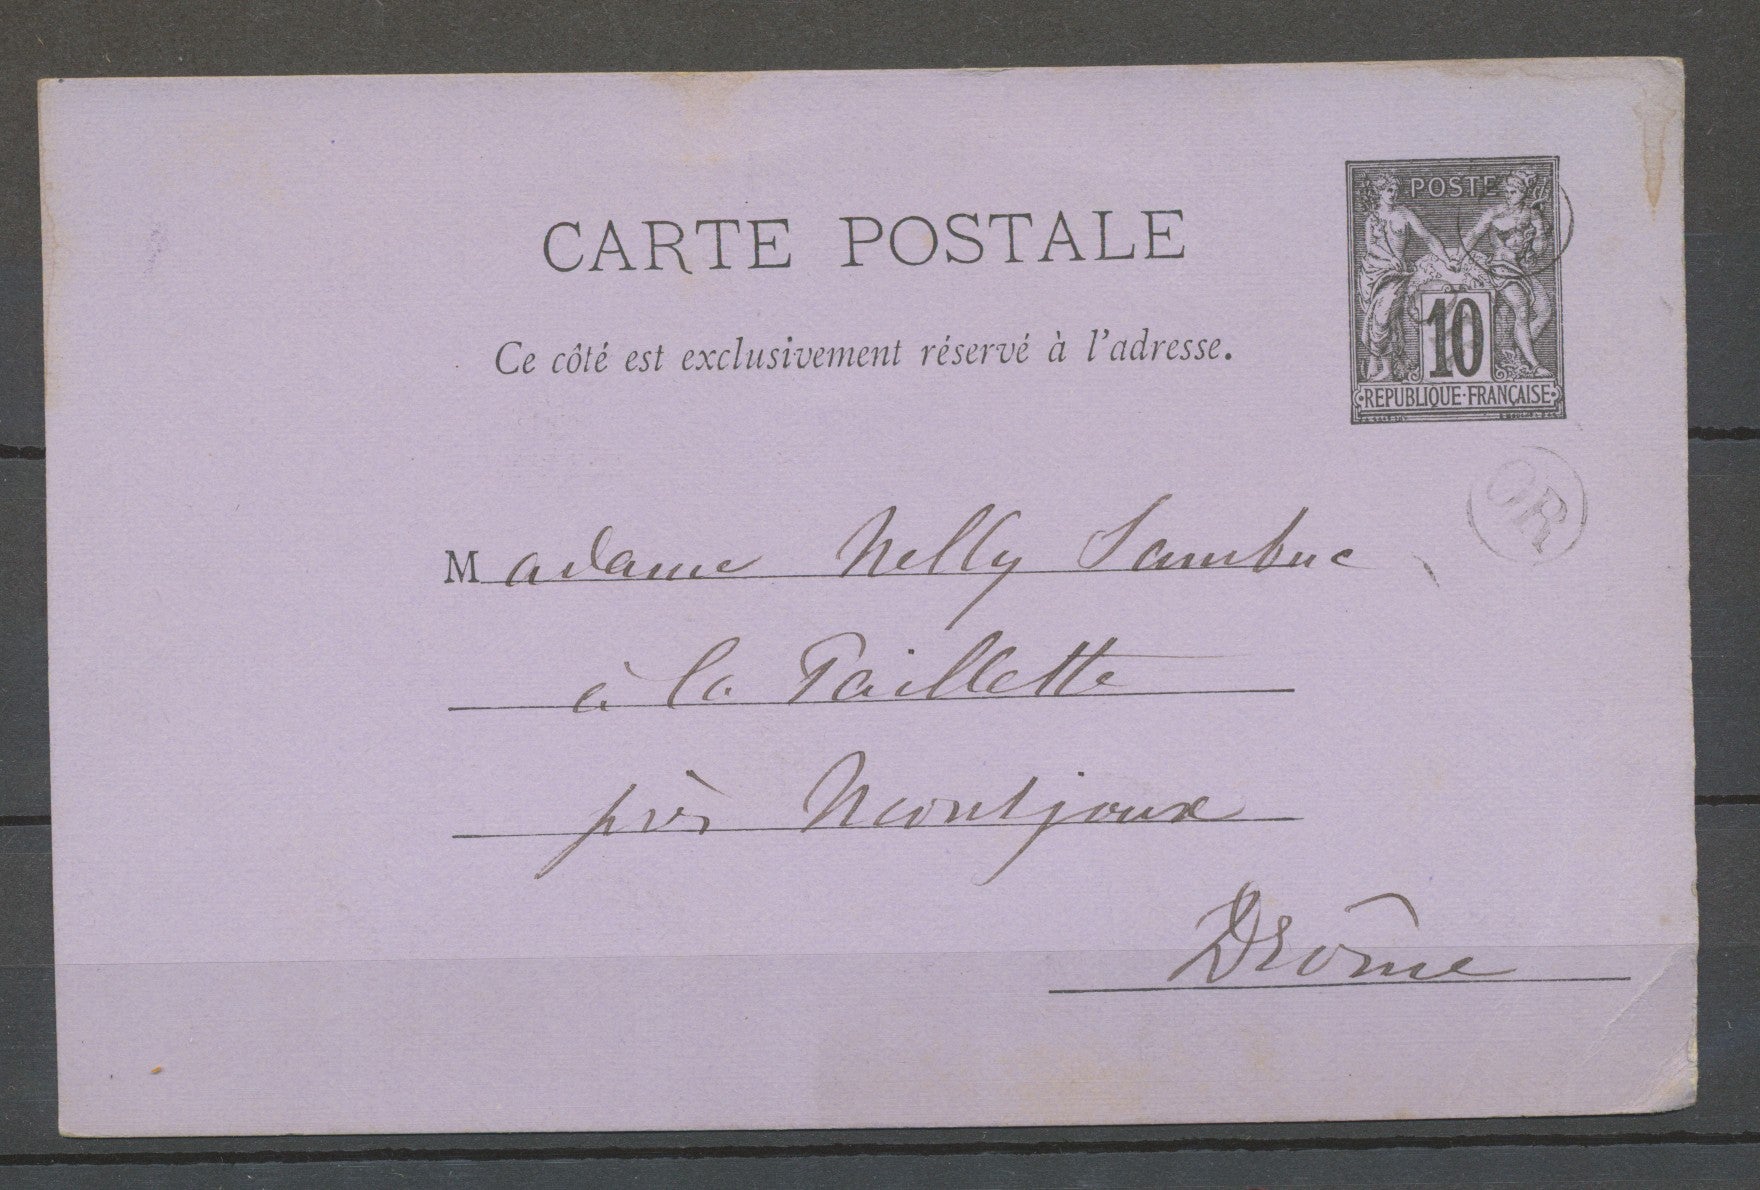 POSTE
CARTE POSTALE
Ce côté est exclusivement réservé à l'adresse.
10
REPUBLIQUE·FRANÇAISE
OR
Madame Nelly Sambuc
à la Paillette
près Montjoux
Drôme